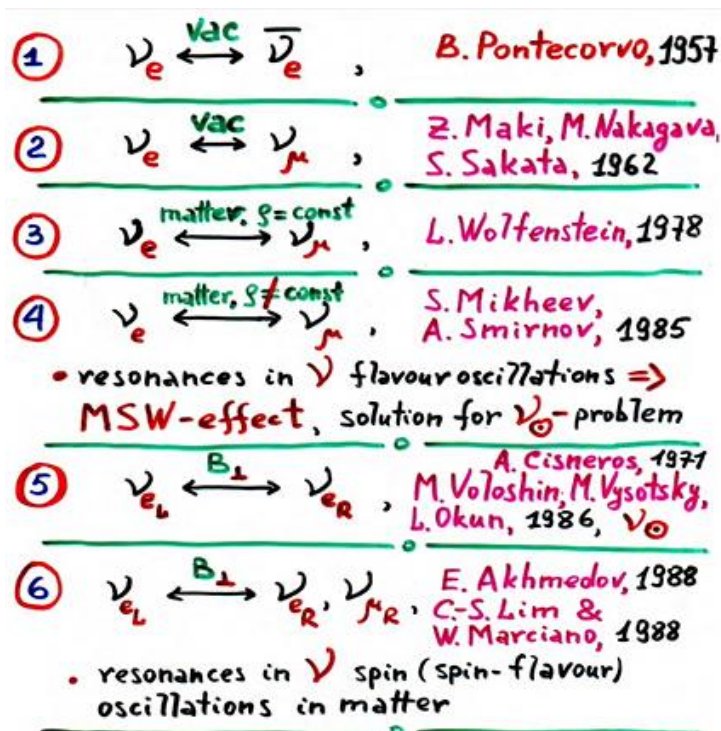 1 ν_e ⟷ ν̄_e , B. Pontecorvo, 1957
vac
2 ν_e ⟷ ν_μ , Z. Maki, M. Nakagava,
vac
S. Sakata, 1962
3 ν_e ⟷ ν_μ , L. Wolfenstein, 1978
matter, ρ = const
4 ν_e ⟷ ν_μ , S. Mikheev,
matter, ρ ≠ const
A. Smirnov, 1985
• resonances in ν flavour oscillations =>
MSW-effect, solution for ν_⊙-problem
5 ν_{e_L} ⟷ ν_{e_R} , A. Cisneros, 1971
B_⊥
M. Voloshin, M. Vysotsky,
L. Okun, 1986, ν_⊙
6 ν_{e_L} ⟷ ν_{e_R}, ν_{μ_R} , E. Akhmedov, 1988
B_⊥
C.-S. Lim &
W. Marciano, 1988
• resonances in ν spin (spin-flavour)
oscillations in matter